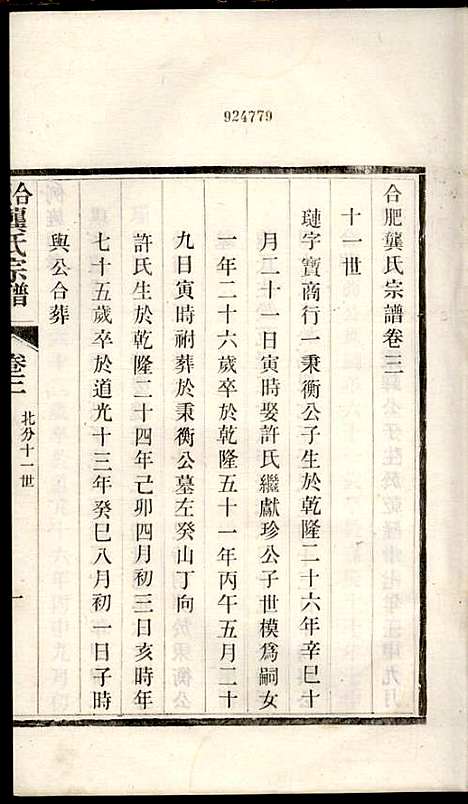 924779
合肥龔氏宗譜卷三
十一世
璉字寶商行一秉衡公子生於乾隆二十六年辛巳十
月二十一日寅時娶許氏繼獻珍公子世模爲嗣女
一年二十六歲卒於乾隆五十一年丙午五月二十
九日寅時祔葬於秉衡公墓左癸山丁向
許氏生於乾隆二十四年己卯四月初三日亥時年
七十五歲卒於道光十三年癸巳八月初一日子時
與公合葬
龔氏宗譜
卷三
北分十一世
一